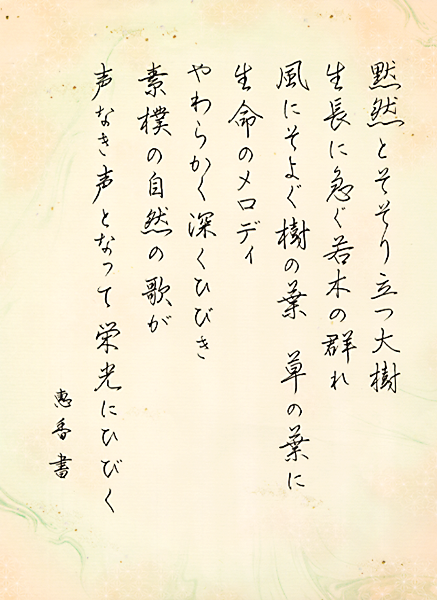 黙然とそそり立つ大樹
生長に急ぐ若木の群れ
風にそよぐ樹の葉　草の葉に
生命のメロディ
やわらかく深くひびき
素樸の自然の歌が
声なき声となって栄光にひびく
惠香書